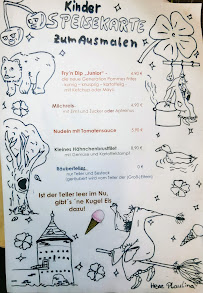 Kinder
SPEISEKARTE
zum Ausmalen
Fry'n Dip „Junior“ - 4,90 €
die neue Generation Pommes Frites
mit Ketchup oder Mayo
Milchreis 
mit Zimt und Zucker oder Apfelmus
Nudeln mit Tomatensauce
Kleines Hähnchenbrustfilet
mit Gemüse und Kartoffelstampf
Räuberteller 0 €
nur Teller und Besteck
Ist der Teller leer im Nu,
gibt´s ´ne Kugel Eis
dazu!